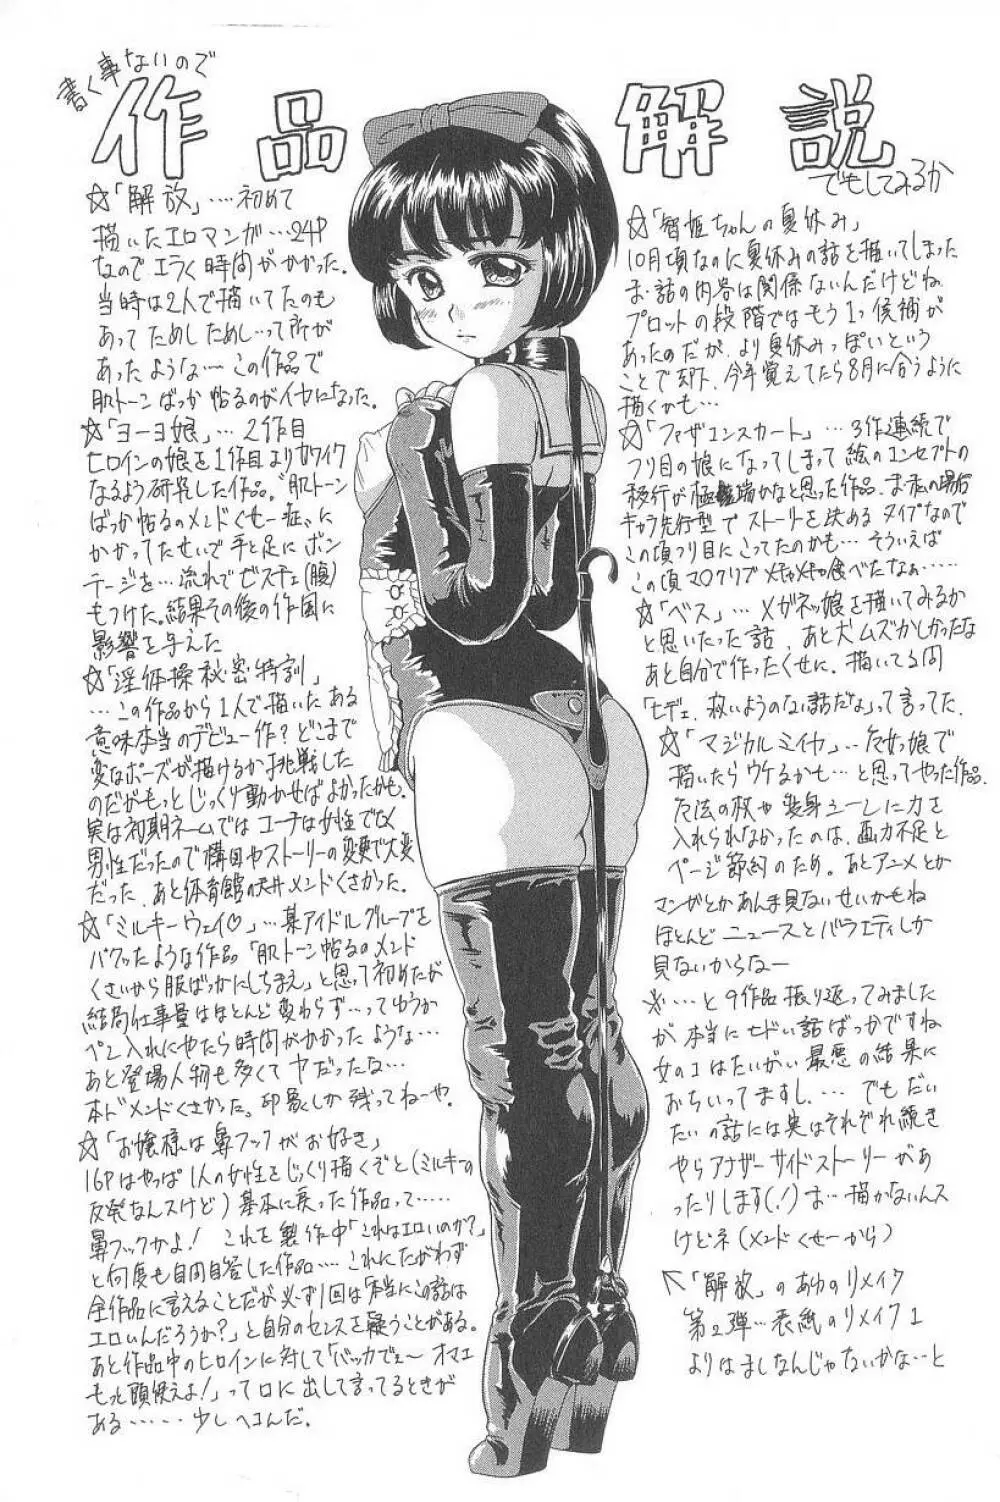 書く事ないので
作品解説
でもしてみるか
☆「解放」‥‥初めて
描いたエロマンガ…24P
なのでエラく時間がかかった。
当時は2人で描いてたのも
あってためしためし…って所が
あったような…この作品で
肌トーンばっか帖るのがイヤになった。
☆「ヨーヨ娘」… 2作目
ヒロインの娘を1作目よりカワイク
なるよう研究した作品。"肌トーン
ばっか帖るのメンドくせー症〟に
かかってたせいで手と足にボン
テージを…流れでビスチェ(腹)
もつけた。結果その後の作風に
影響を与えた
☆「淫体操秘密特訓」
…この作品から1人で描いたある
意味本当のデビュー作?どこまで
変なポーズが描けるか挑戦した
のだがもっとじっくり動かせばよかったかも。
実は初期ネームではコーチは女性でなく
男性だったので構図やストーリーの変更で大変
だった、あと体育館の天井メンドくさかった。
☆「ミルキーウェイ♡」…某アイドルグループを
パクったような作品「肌トーン帖るのメンド
くさいから服ばっかにしちまえ」と思って初めたが
結局仕事量はほとんど変わらず…ってゆうか
ペン入れにやたら時間がかかったような…
あと登場人物も多くてヤだったな…
本ドメンドくさかった。印象しか残ってねーや。
☆「お嬢様は鼻フックがお好き」
16Pはやっぱ1人の女性をじっくり描くぞと(ミルキーの
反発なんスけど)基本に戻った作品って……
鼻フックかよ! これを製作中「これはエロいのか?」
と何度も自問自答した作品…。これにたがわず
全作品に言えることだが必ず1回は「本当にこの話は
エロいんだろうか?」と自分のセンスを疑うことがある。
あと作品中のヒロインに対して「バッカでぇ～オマエ
もっと頭使えよ!」って口に出して言ってるときが
ある……少しヘコんだ。
☆「智姫ちゃんの夏休み」
10月頃なのに夏休みの話を描いてしまった
ま、話の内容は関係ないんだけどね
プロットの段階ではもう1つ候補が
あったのだが、より夏休みっぽいという
ことで却下、今年覚えてたら8月に合うように
描くかも…
☆「ファザコンスカート」…3作連続で
ツリ目の娘になってしまって絵のコンセプトの
移行が極端かなと思った作品、ま私の場合
キャラ先行型でストーリーを決めるタイプなので
この頃ツリ目にこってたのかも…そういえば
この頃マロクリブメチャメチャ食べてたなぁ……
☆「ベス」… メガネッ娘を描いてみるか
と思いたった話、あと犬ムズかしかったな
あと自分で作ったくせに、描いてる間
「ヒデェ、救いようのない話だな」って言ってた。
☆「マジカルミイヤ」…魔女っ娘で
描いたらウケるかも…と思ってやった作品、
魔法の杖や変身シーンに力を
入れられなかったのは、画力不足と
ページ節約のため。あとアニメとか
マンガとかあんま見ないせいかもね
ほとんどニュースとバラエティしか
見ないからなー
※…と9作品振り返ってみました
が本当にヒドい話ばっかですね
女のコはたいがい最悪の結果に
おちいってますし…。でもだい
たいの話には実はそれぞれ続き
やらアナザーサイドストーリーがあ
ったりします(!)ま…描かないんス
けどネ(メンドくせーから)
↖「解放」のあゆのリメイク
第2弾…表紙のリメイク1
よりはましなんじゃないかな…と